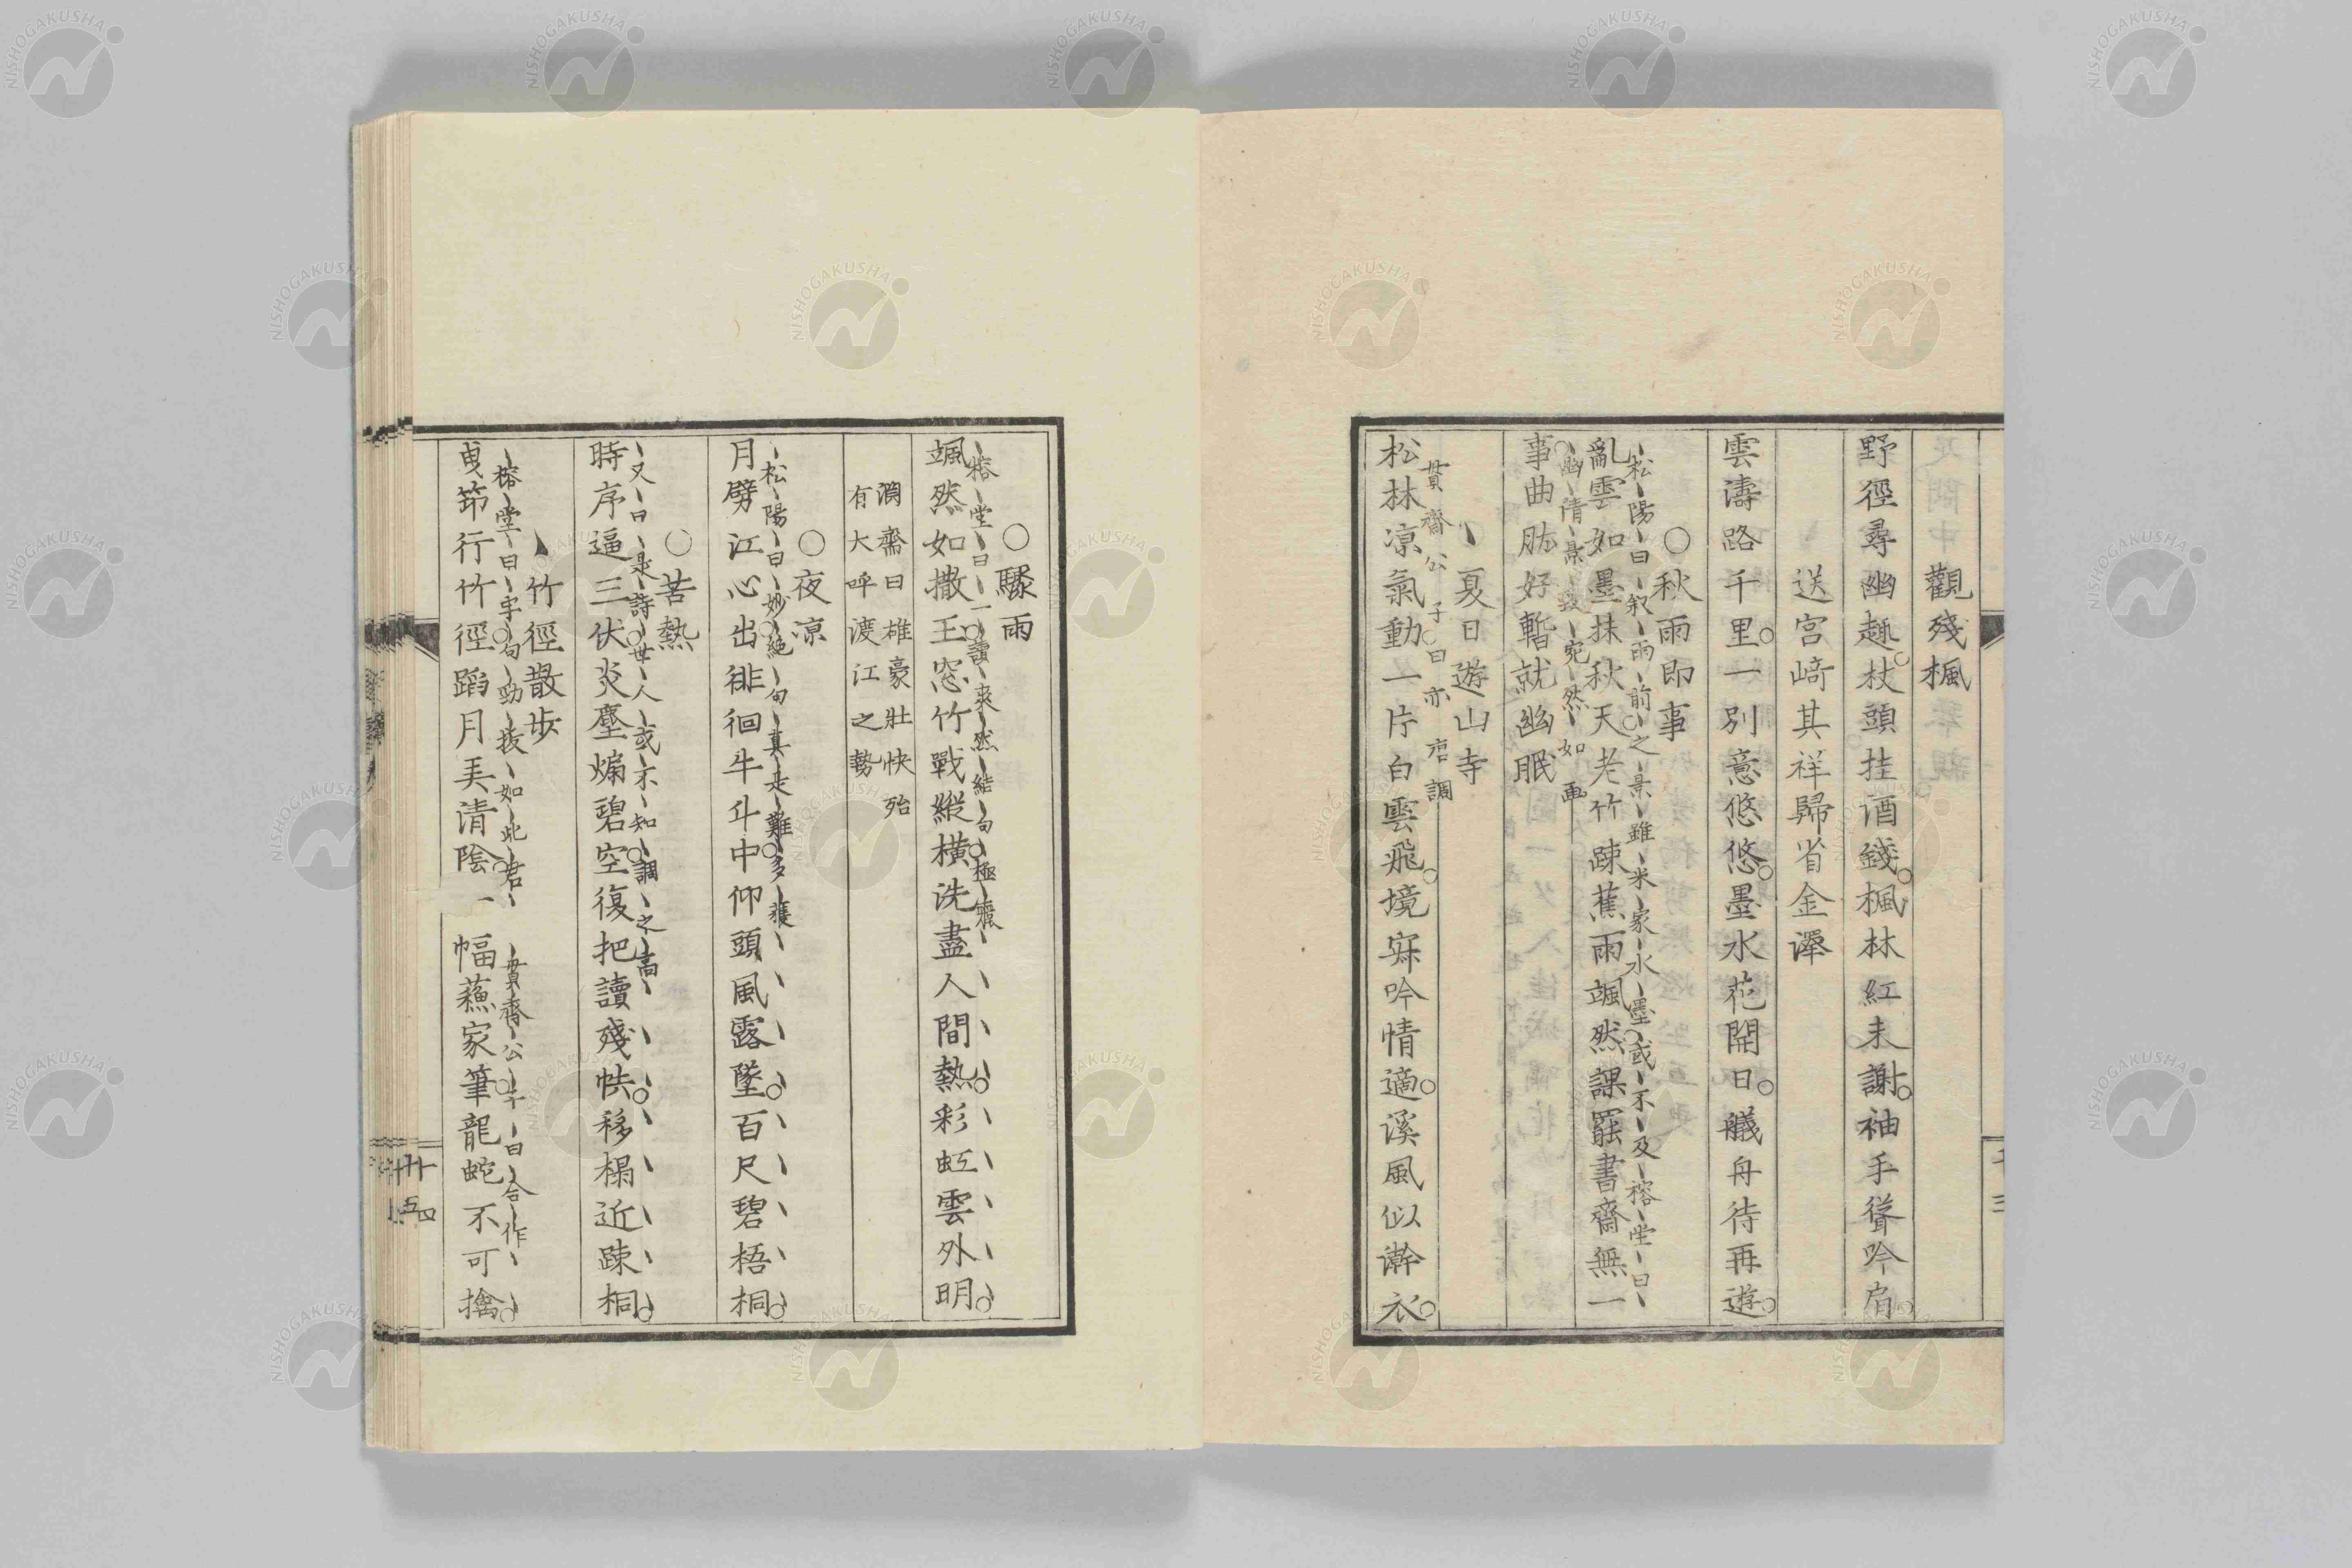 觀殘楓
野徑尋幽趣杖頭挂酒錢楓林紅未謝袖手聳吟肩
送宮﨑其祥歸省金澤
雲濤路千里一別意悠悠墨水花開日艤舟待再遊
○秋雨即事
松陽曰叙雨前之景雖米家水墨或不及榕堂曰
亂雲如墨抹秋天老竹踈蕉雨颯然課罷書齋無一
幽情景致宛然如画
事曲肱好暫就幽眠
夏日遊山寺
貫齋公子曰亦唐調
松林凉氣動一片白雲飛境寂吟情適溪風似澣衣
○驟雨
榕堂曰一讀爽然結句極
颯然如撒玉窓竹戰縱橫洗盡人間熱彩虹雲外明
澗齋曰雄豪壯快殆
有大呼渡江之勢
○夜凉
松陽曰妙絕句真是難多獲
月劈江心出徘徊牛斗中仰頭風露墜百尺碧梧桐
○苦熱
又曰是詩世人或不知調之高
時序逼三伏炎塵煽碧空復把讀殘帙移榻近踈桐
竹徑散步
榕堂曰字句勁拔如此君
貫齋公子曰合作
曳筇行竹徑蹈月弄清陰一幅蘓家筆龍蛇不可擒
十四
十五
NISHOGAKUSHA